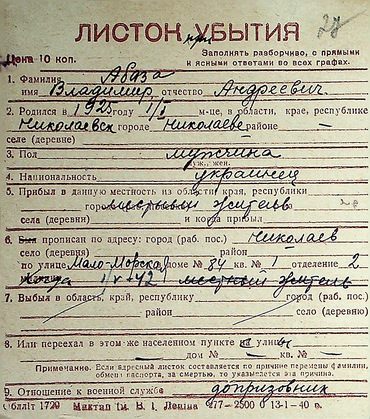 27
ЛИСТОК при УБЫТИЯ
Цена 10 коп.
Заполнять разборчиво, с прямыми
и ясными ответами во всех графах.
1. Фамилия Абаза
имя Владимир отчество Андреевич
2. Родился в 1925 году 1/I м-це, в области, крае, республике
Николаевск городе Николаеве районе —
селе (деревне)
3. Пол мужчина
муж., жен.
4. Национальность украинец
5. Прибыл в данную местность из области, края, республики
города местный житель
села (деревни) и когда прибыл
6. Был прописан по адресу: город (раб. пос.) Николаев
село (деревня) район
по улице Мало-Морская доме № 84 кв. № 1 отделение 2
местный житель
7. Выбыл в область, край, республику
город (раб. пос.)
район село (деревню)
8. Или переехал в этом же населенном пункте на улицу
дом № кв. №
Примечание. Если адресный листок составляется по перемене фамилии,
обмену паспорта, за смертью, то указывается эта причина.
9. Отношение к военной службе допризовник
Обліт 1720 ім. В. І. Леніна 477—2500 13-1-40 р.